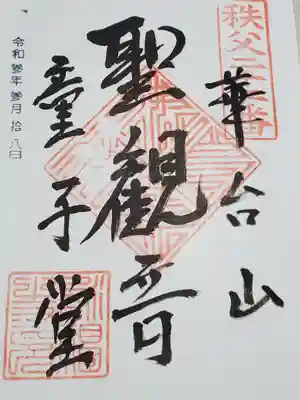 秩父二二番
華台山
聖観音
童子堂
令和參年參月拾八日